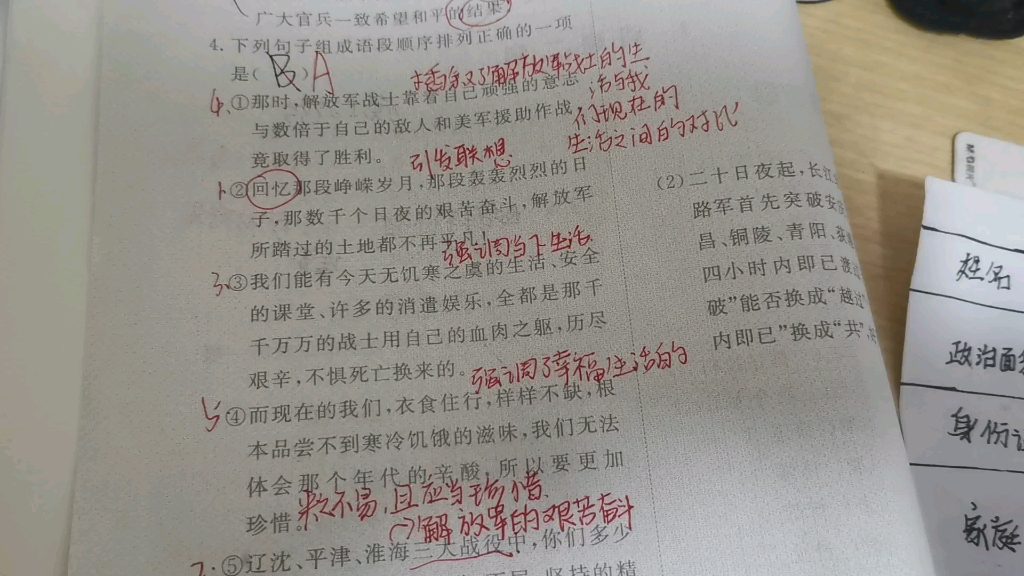 广大官兵一致希望和平的结果
4.下列句子组成语段顺序排列正确的一项
是( B ) A
4、①那时,解放军战士靠着自己顽强的意志
与数倍于自己的敌人和美军援助作战,
竟取得了胜利。
插叙了解放军战士的生
活与我
们现在的
生活之间的对比
引发联想
1、②回忆那段峥嵘岁月,那段轰轰烈烈的日
子,那数千个日夜的艰苦奋斗,解放军
所踏过的土地都不再平凡!
强调当下生活
3、③我们能有今天无饥寒之虞的生活、安全
的课堂、许多的消遣娱乐,全都是那千
千万万的战士用自己的血肉之躯,历尽
艰辛,不惧死亡换来的。
强调了幸福生活的
5④而现在的我们,衣食住行,样样不缺,根
本品尝不到寒冷饥饿的滋味,我们无法
体会那个年代的辛酸,所以要更加
珍惜。
来不易,且应当珍惜
解放军的艰苦奋斗
2、⑤辽沈、平津、淮海三大战役中,你们多少
坚持的精
(2)二十日夜起,长江
路军首先突破安
昌、铜陵、青阳、荻
四小时内即已渡
破”能否换成“越过
内即已”换成“共”,
姓名
政治面
身份证
家庭